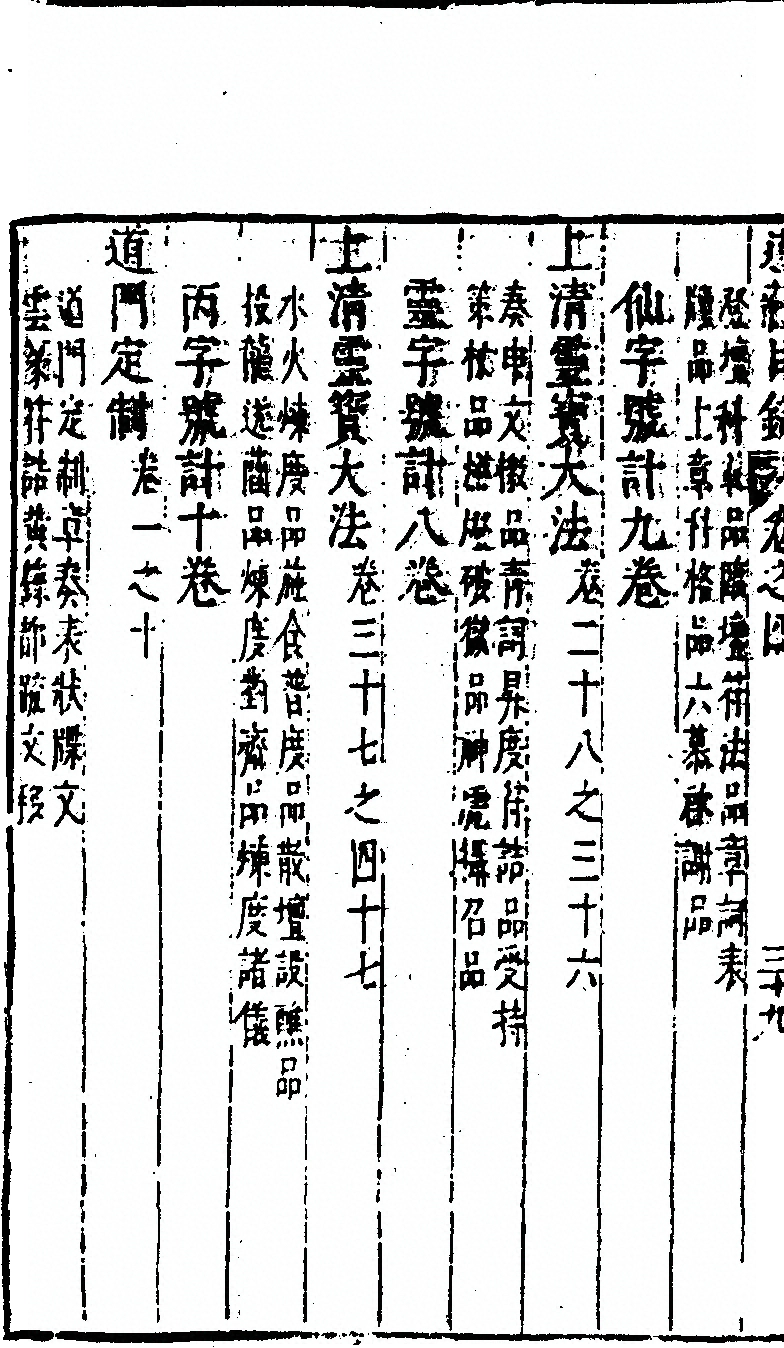 卷之四
登壇科範品陞壇符法品章詞表
牘品上章什格品六幕啓謝品
仙字號計九卷
上清靈寶大法卷二十八之三十六
奏申文檄品青詞昇度符誥品受持
策杖品燈壇破獄品神虎攝召品
靈字號計八卷
上清靈寶大法卷三十七之四十七
水火煉度品施食普度品散壇設醮品
投龍送簡品煉度對齋品煉度諸儀
丙字號計十卷
道門定制卷一之十
道門定制章奏表狀牒文
雲篆符誥黃籙都疏文移